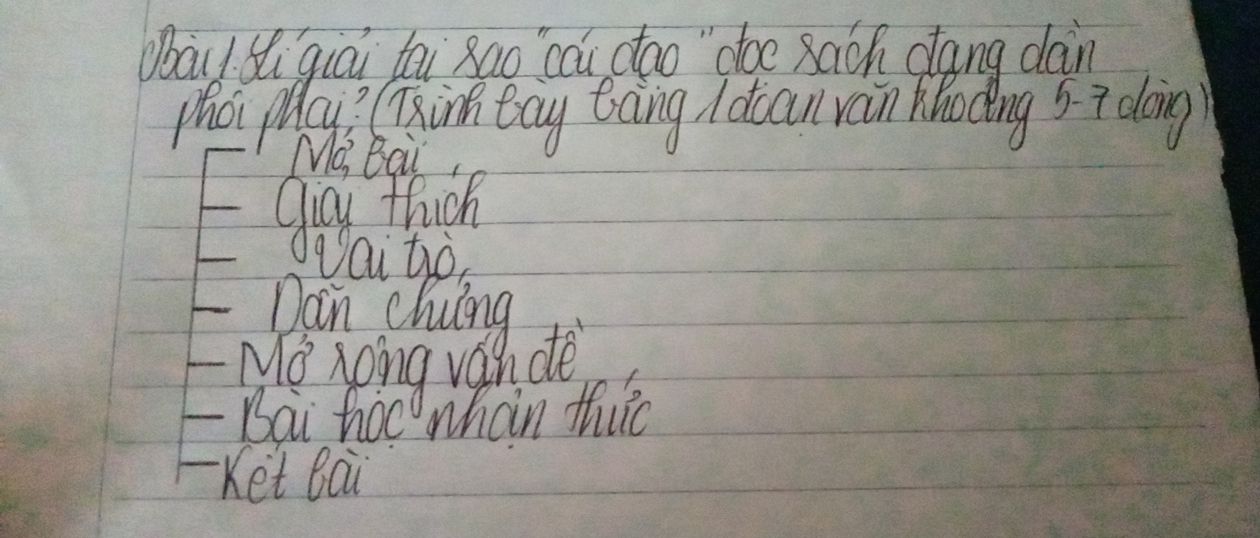 Bài 1. Lí giải tại sao "cái đạo" đọc sách đang dần
phôi phai? (Trình bày bằng 1 đoạn văn khoảng 5-7 dòng)
Mở bài
Giảy thích
Vai trò
Dẫn chứng
Mở rộng vấn đề
Bài học nhận thức
Kết bài